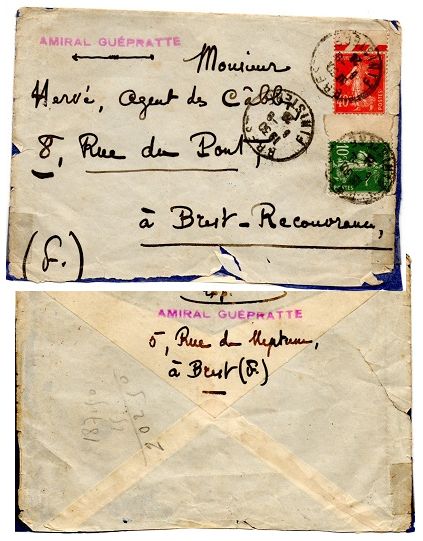 AMIRAL GUÉPRATTE
Monsieur
Hervé, Agent des Câbles
8, Rue du Pont,
à Brest-Recouvrance,
(F.)
BREST
FINISTERE
POSTES
10
POSTES
AMIRAL GUÉPRATTE
5, Rue du Neptune,
à Brest (F.)